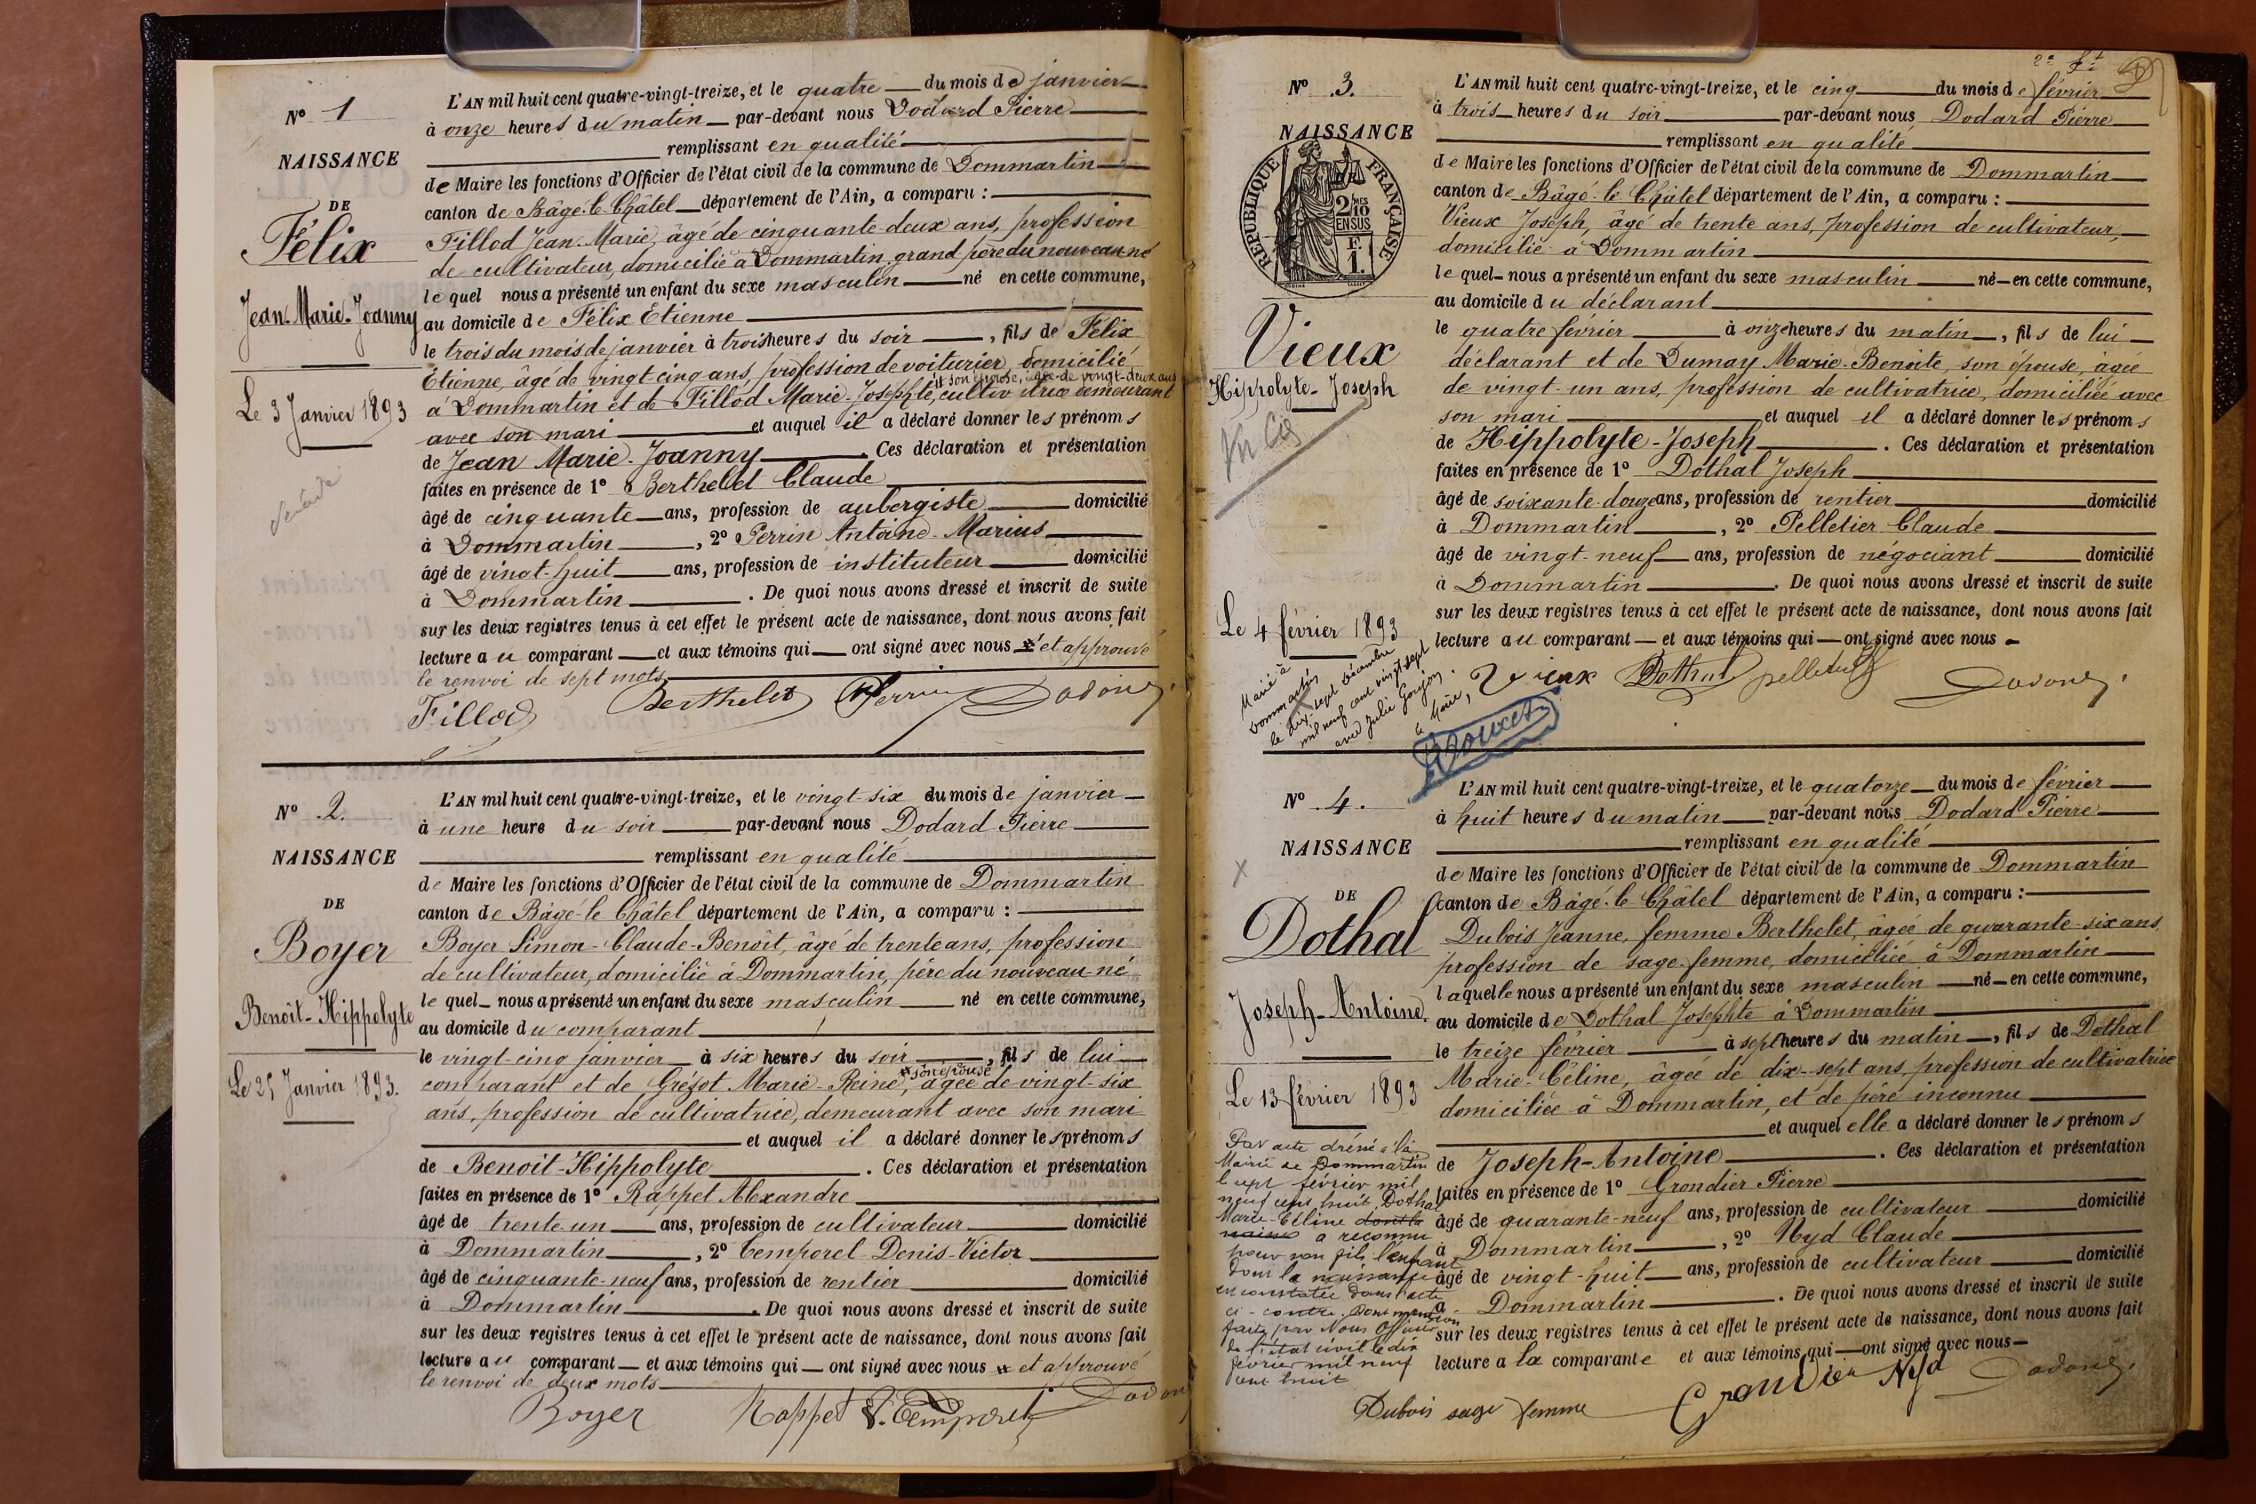 N° 1
NAISSANCE
DE
Félix
Jean-Marie-Joanny
Le 3 Janvier 1893
L'AN mil huit cent quatre-vingt-treize, et le quatre du mois de janvier
à onze heures du matin par-devant nous Dodard Pierre
remplissant en qualité
de Maire les fonctions d'Officier de l'état civil de la commune de Dommartin
canton de Bâgé-le-Châtel département de l'Ain, a comparu :
Fillod Jean-Marie, âgé de cinquante-deux ans, profession
de cultivateur, domicilié à Dommartin, grand père du nouveau-né
lequel nous a présenté un enfant du sexe masculin né en cette commune,
au domicile de Félix Etienne
le trois du mois de janvier à trois heures du soir, fils de Félix
Etienne, âgé de vingt-cinq ans, profession de voiturier, domicilié
à Dommartin et de Fillod Marie-Josephte, cultivatrice demeurant
son épouse, âgée de vingt-deux ans
avec son mari et auquel il a déclaré donner les prénoms
de Jean Marie-Joanny. Ces déclaration et présentation
faites en présence de 1° Berthelet Claude
âgé de cinquante ans, profession de aubergiste domicilié
à Dommartin, 2° Perrin Antoine-Marius
âgé de vingt-huit ans, profession de instituteur domicilié
à Dommartin. De quoi nous avons dressé et inscrit de suite
sur les deux registres tenus à cet effet le présent acte de naissance, dont nous avons fait
lecture au comparant et aux témoins qui ont signé avec nous et approuvé
le renvoi de sept mots
Fillod Berthelet Perrin Dodard
N° 2.
NAISSANCE
DE
Boyer
Benoît-Hippolyte
Le 25 Janvier 1893.
L'AN mil huit cent quatre-vingt-treize, et le vingt-six du mois de janvier
à une heure du soir par-devant nous Dodard Pierre
remplissant en qualité
de Maire les fonctions d'Officier de l'état civil de la commune de Dommartin
canton de Bâgé-le-Châtel département de l'Ain, a comparu :
Boyer Simon-Claude-Benoît, âgé de trente ans, profession
de cultivateur, domicilié à Dommartin, père du nouveau-né
lequel nous a présenté un enfant du sexe masculin né en cette commune,
au domicile du comparant
le vingt-cinq janvier à six heures du soir, fils de lui
comparant et de Grézot Marie-Reine, x son épouse âgée de vingt-six
ans, profession de cultivatrice, demeurant avec son mari
et auquel il a déclaré donner les prénoms
de Benoit-Hippolyte. Ces déclaration et présentation
faites en présence de 1° Rappet Alexandre
âgé de trente-un ans, profession de cultivateur domicilié
à Dommartin, 2° Temporel Denis-Victor
âgé de cinquante-neuf ans, profession de rentier domicilié
à Dommartin. De quoi nous avons dressé et inscrit de suite
sur les deux registres tenus à cet effet le présent acte de naissance, dont nous avons fait
lecture au comparant et aux témoins qui ont signé avec nous x et approuvé
le renvoi de deux mots
Boyer Rappet V. Temporel Dodard
N° 3.
NAISSANCE
RÉPUBLIQUE FRANÇAISE
2/10
EN SUS
F.
1.
Vieux
Hippolyte-Joseph
Le 4 février 1893
Marié à
Dommartin
le dix-sept décembre
mil neuf cent vingt sept
avec Julie Goujon.
Le Maire,
L'AN mil huit cent quatre-vingt-treize, et le cinq du mois de février
à trois heures du soir par-devant nous Dodard Pierre
remplissant en qualité
de Maire les fonctions d'Officier de l'état civil de la commune de Dommartin
canton de Bâgé-le-Châtel département de l'Ain, a comparu :
Vieux Joseph, âgé de trente ans, profession de cultivateur,
domicilié à Dommartin
lequel nous a présenté un enfant du sexe masculin né en cette commune,
au domicile du déclarant
le quatre février à onze heures du matin, fils de lui
déclarant et de Dumay Marie-Benoite, son épouse, âgée
de vingt-un ans, profession de cultivatrice, domiciliée avec
son mari et auquel il a déclaré donner les prénoms
de Hippolyte-Joseph. Ces déclaration et présentation
faites en présence de 1° Dothal Joseph
âgé de soixante-douze ans, profession de rentier domicilié
à Dommartin, 2° Pelletier Claude
âgé de vingt-neuf ans, profession de négociant domicilié
à Dommartin. De quoi nous avons dressé et inscrit de suite
sur les deux registres tenus à cet effet le présent acte de naissance, dont nous avons fait
lecture au comparant et aux témoins qui ont signé avec nous
Vieux Dothal pelletier Dodard
N° 4.
NAISSANCE
DE
Dothal
Joseph-Antoine
Le 13 février 1893
Par acte dréssé à la
Mairie de Dommartin
le sept février mil
neuf cent huit, Dothal
Marie-Céline
a reconnu
pour son fils l'enfant
dont la naissance
est constatée dans l'acte
ci-contre. Dont mention
faite par Nous Officier
de l'état civil le dix
février mil neuf
cent huit
L'AN mil huit cent quatre-vingt-treize, et le quatorze du mois de février
à huit heures du matin par-devant nous Dodard Pierre
remplissant en qualité
de Maire les fonctions d'Officier de l'état civil de la commune de Dommartin
canton de Bâgé-le-Châtel département de l'Ain, a comparu :
Dubois Jeanne, femme Berthelet, âgée de quarante-six ans
profession de sage-femme, domiciliée à Dommartin
laquelle nous a présenté un enfant du sexe masculin né en cette commune,
au domicile de Dothal Josephte à Dommartin
le treize février à sept heures du matin, fils de Dothal
Marie-Céline, âgée de dix-sept ans, profession de cultivatrice
domiciliée à Dommartin, et de père inconnu
et auquel elle a déclaré donner les prénoms
de Joseph-Antoine. Ces déclaration et présentation
faites en présence de 1° Grondier Pierre
âgé de quarante-neuf ans, profession de cultivateur domicilié
à Dommartin, 2° Nyd Claude
âgé de vingt-huit ans, profession de cultivateur domicilié
à Dommartin. De quoi nous avons dressé et inscrit de suite
sur les deux registres tenus à cet effet le présent acte de naissance, dont nous avons fait
lecture a la comparante et aux témoins qui ont signé avec nous
Dubois sage femme Grondier Nyd Dodard